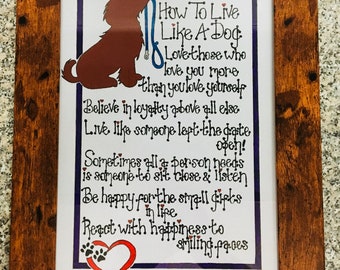 How To Live
Like A Dog
Love those who
love you more
than you love yourself
Believe in loyalty above all else
Live like someone left the gate
open!
Sometimes all a person needs
is someone to sit close & listen
Be happy for the small gifts
in life
React with happiness to
smiling faces